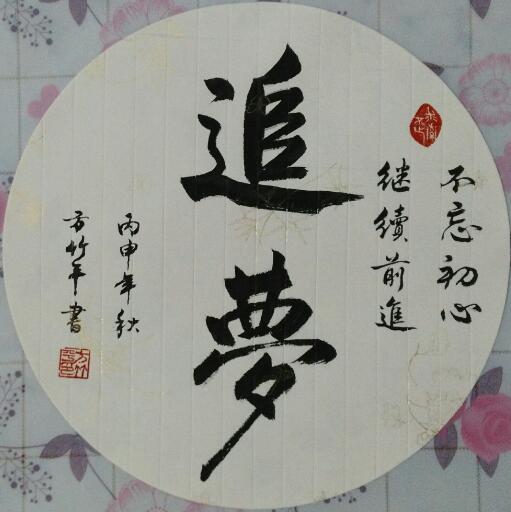 不忘初心
继續前進
追夢
丙申年秋
方竹平書